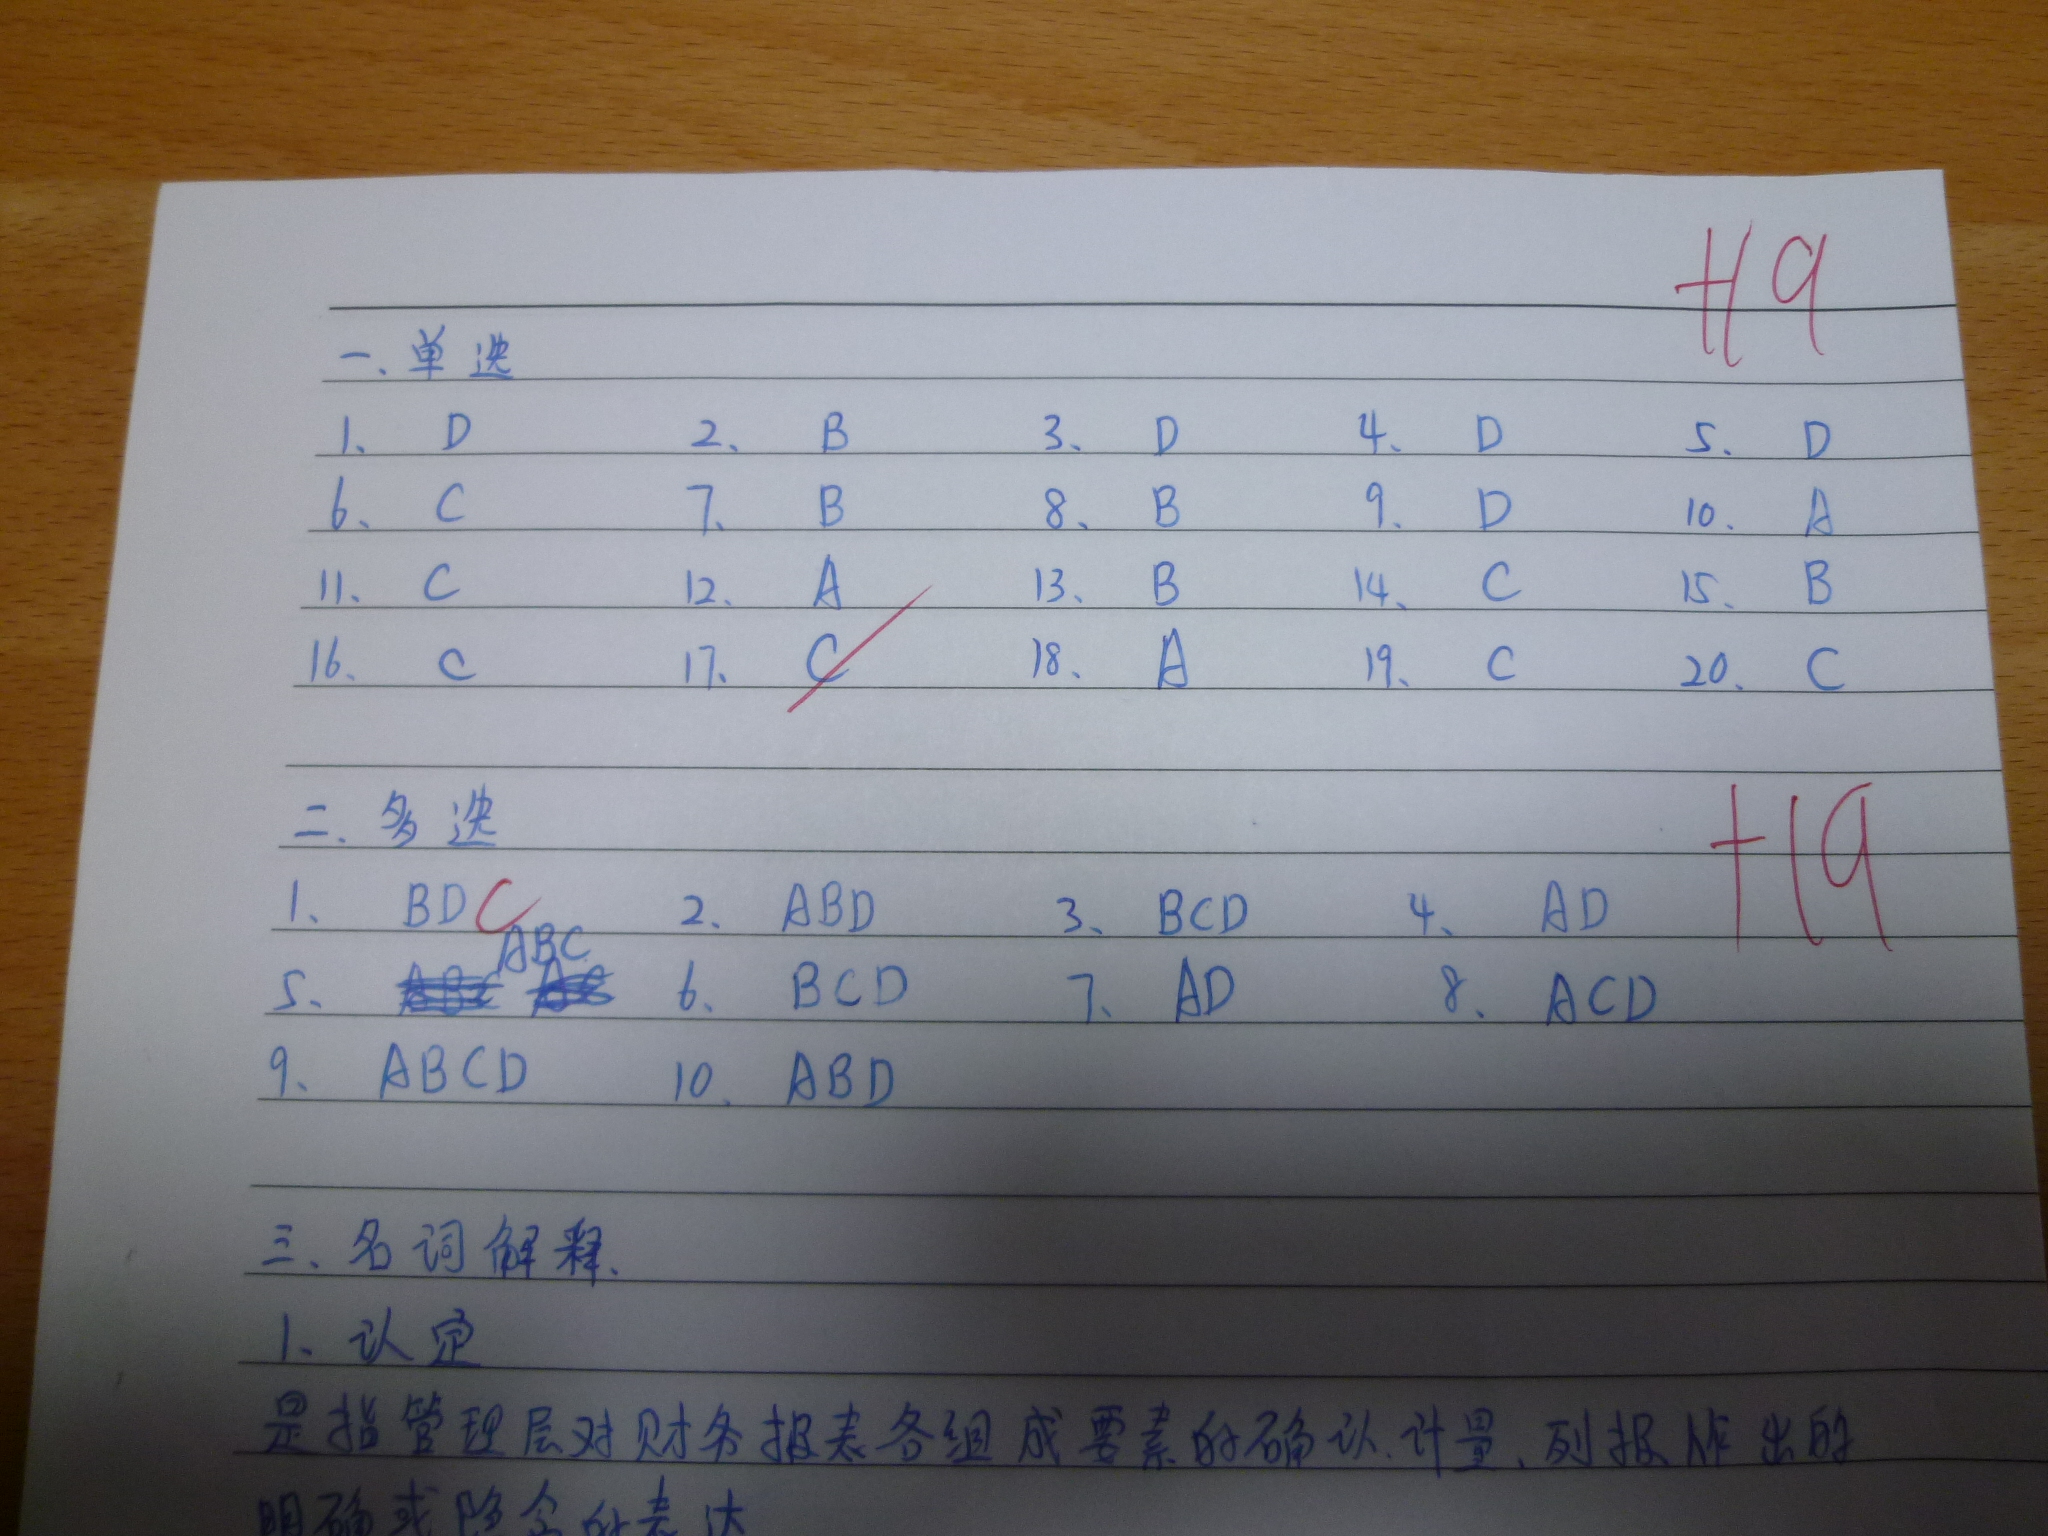 +19
一、单选
1、 D 2、 B 3、 D 4、 D 5、 D
6、 C 7、 B 8、 B 9、 D 10、 A
11、 C 12、 A 13、 B 14、 C 15、 B
16、 C 17、 C 18、 A 19、 C 20、 C
二、多选
+19
1、 BD C 2、 ABD 3、 BCD 4、 AD
5、 ABC 6、 BCD 7、 AD 8、 ACD
9、 ABCD 10、 ABD
三、名词解释、
1、认定
是指管理层对财务报表各组成要素的确认、计量、列报作出的
明确或隐含的表达